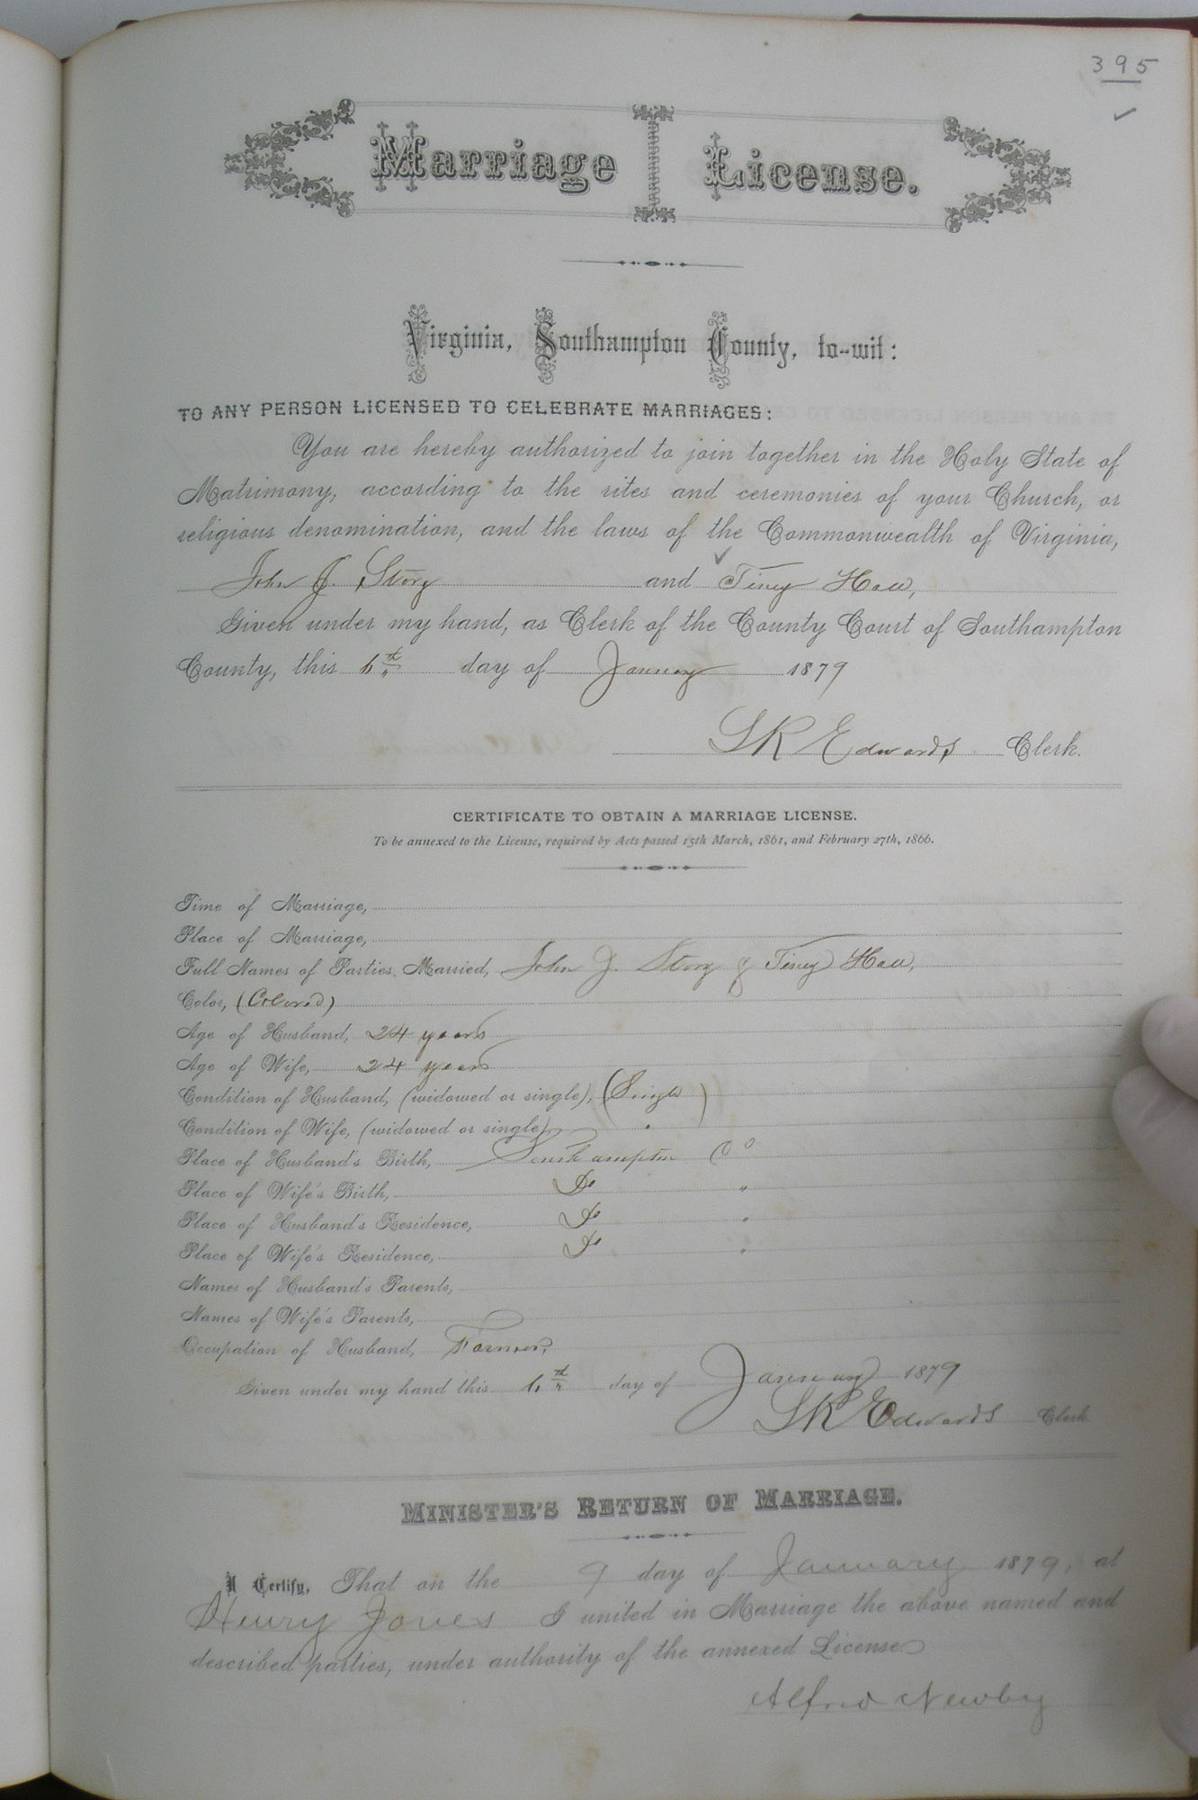 395
✓
Marriage License.
Virginia, Southampton County, to-wit:
TO ANY PERSON LICENSED TO CELEBRATE MARRIAGES:
You are hereby authorized to join together in the Holy State of
Matrimony, according to the rites and ceremonies of your Church, or
religious denomination, and the laws of the Commonwealth of Virginia,
John J. Story and Tiney Hall,
Given under my hand, as Clerk of the County Court of Southampton
County, this 6th day of January 1879
L R Edwards Clerk.
CERTIFICATE TO OBTAIN A MARRIAGE LICENSE.
To be annexed to the License, required by Acts passed 15th March, 1861, and February 27th, 1866.
Time of Marriage,
Place of Marriage,
Full Names of Parties Married, John J. Story & Tiney Hall,
Color, (Colored)
Age of Husband, 24 years
Age of Wife, 24 years
Condition of Husband, (widowed or single), (Single)
Condition of Wife, (widowed or single) "
Place of Husband's Birth, Southampton Co
Place of Wife's Birth, Do "
Place of Husband's Residence, Do "
Place of Wife's Residence, Do "
Names of Husband's Parents,
Names of Wife's Parents,
Occupation of Husband, Farmer,
Given under my hand this 6th day of January 1879
L R Edwards Clerk
MINISTER'S RETURN OF MARRIAGE.
I Certify, That on the 9 day of January 1879, at
Henry Jones I united in Marriage the above named and
described parties, under authority of the annexed License
Alfred Newby